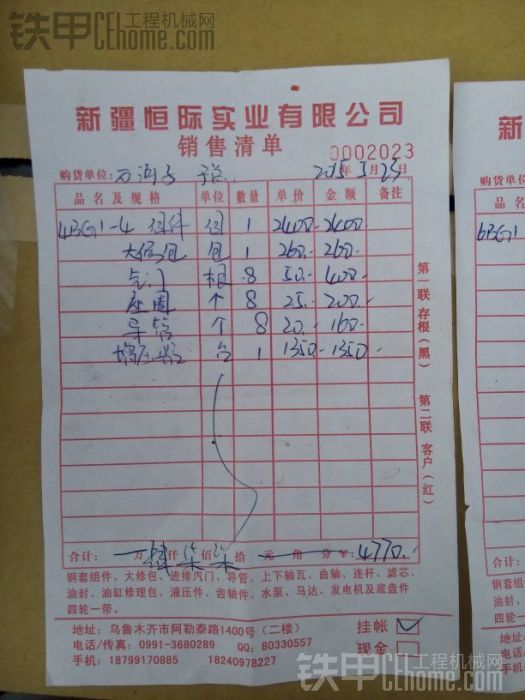 铁甲 工程机械网
CEhome.com
新疆恒际实业有限公司
销售清单
0002023
购货单位: 石河子 2015年5月25日
品名及规格 单位 数量 单价 金额 备注
4BG1-4 组件 组 1 2400.- 2400.-
大修包 包 1 260.- 260.-
气门 根 8 50.- 400.-
座圈 个 8 25.- 200.-
导管 个 8 20.- 160.-
增压器 台 1 1350.- 1350.-
第一联 存根(黑) 第二联 客户(红)
合计: 万 肆仟 柒佰 柒拾 元 角 分 ¥: 4770.-
钢套组件、大修包、进排汽门、导管、上下轴瓦、曲轴、连杆、滤芯、
油封、油缸修理包、液压件、齿轴件、水泵、马达、发电机及底盘件
四轮一带。
地址: 乌鲁木齐市阿勒泰路1400号(二楼) 挂帐
电话/传真: 0991-3680289 QQ: 80330557 现金
手机: 18799170885 18240978227
新
品名
6BG1
铁甲 工程机械网
CEhome.com